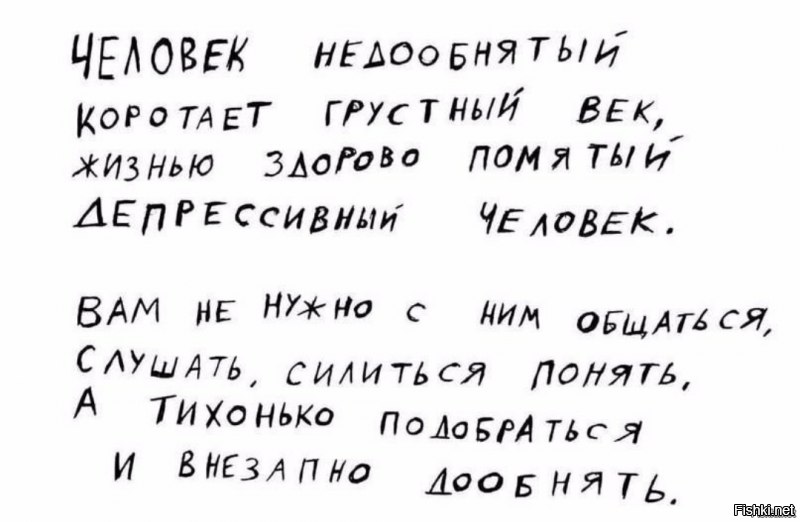 ЧЕЛОВЕК НЕДООБНЯТЫЙ
КОРОТАЕТ ГРУСТНЫЙ ВЕК,
ЖИЗНЬЮ ЗДОРОВО ПОМЯТЫЙ
ДЕПРЕССИВНЫЙ ЧЕЛОВЕК.
ВАМ НЕ НУЖНО С НИМ ОБЩАТЬСЯ,
СЛУШАТЬ, СИЛИТЬСЯ ПОНЯТЬ,
А ТИХОНЬКО ПОДОБРАТЬСЯ
И ВНЕЗАПНО ДООБНЯТЬ.
Fishki.net